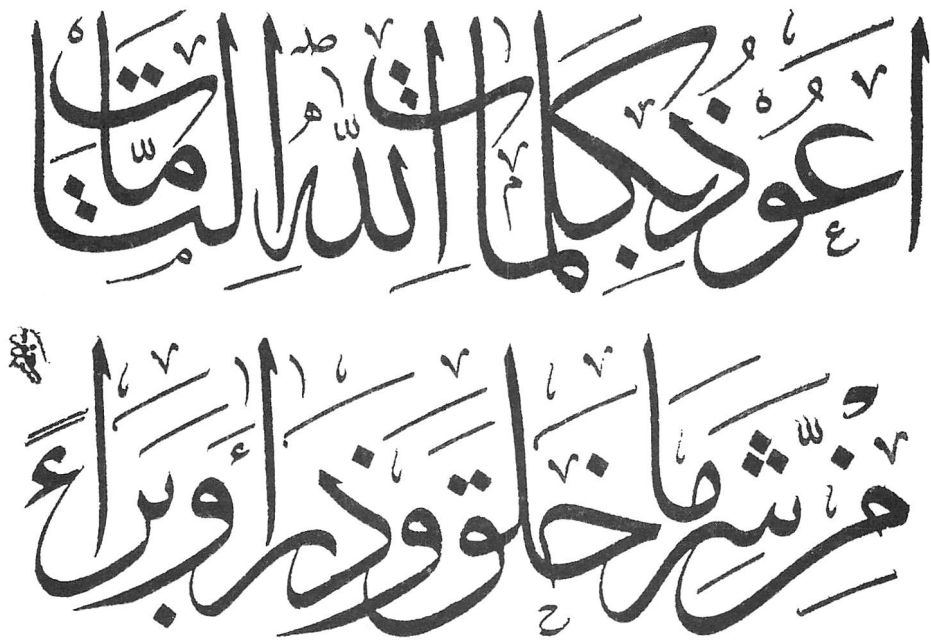 اعُوذُ بِكَلِمَاتِ اللّٰهِ التَّامَّاتِ
مِنْ شَرِّ مَا خَلَقَ وَذَرَأَ وَبَرَاءً